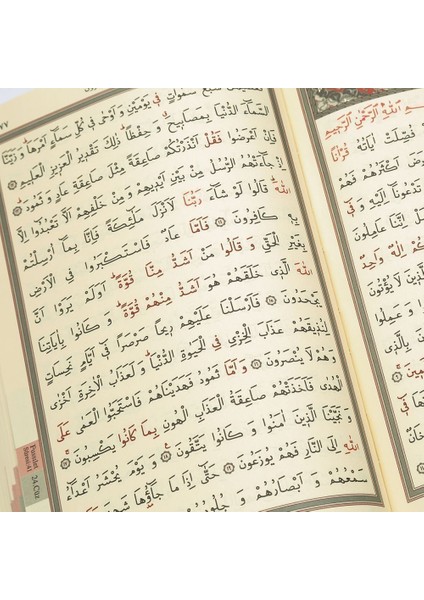 سَبْعَ سَمٰوَاتٍ فٖي يَوْمَيْنِ وَ اَوْحٰى فٖي كُلِّ سَمَٓاءٍ اَمْرَهَاۜ وَ زَيَّنَّا
السَّمَٓاءَ الدُّنْيَا بِمَصَابٖيحَۗ وَ حِفْظاًۜ ذٰلِكَ تَقْدٖيرُ الْعَزٖيزِ الْعَلٖيمِ
فَاِنْ اَعْرَضُوا فَقُلْ اَنْذَرْتُكُمْ صَاعِقَةً مِثْلَ صَاعِقَةِ عَادٍ وَ ثَمُودَۜ
اِذْ جَٓاءَتْهُمُ الرُّسُلُ مِنْ بَيْنِ اَيْدٖيهِمْ وَ مِنْ خَلْفِهِمْ اَلَّا تَعْبُدُٓوا اِلَّا
اللّٰهَۜ قَالُوا لَوْ شَٓاءَ رَبُّنَا لَاَنْزَلَ مَلٰٓئِكَةً فَاِنَّا بِمَٓا اُرْسِلْتُمْ
بِهٖ كَافِرُونَ فَاَمَّا عَادٌ فَاسْتَكْبَرُوا فِي الْاَرْضِ
بِغَيْرِ الْحَقِّ وَ قَالُوا مَنْ اَشَدُّ مِنَّا قُوَّةًۜ اَوَلَمْ يَرَوْا اَنَّ
اللّٰهَ الَّذٖي خَلَقَهُمْ هُوَ اَشَدُّ مِنْهُمْ قُوَّةًۜ وَ كَانُوا بِاٰيَاتِنَا
يَجْحَدُونَ فَاَرْسَلْنَا عَلَيْهِمْ رٖيحاً صَرْصَراً فٖٓي اَيَّامٍ نَحِسَاتٍ
لِنُذٖيقَهُمْ عَذَابَ الْخِزْيِ فِي الْحَيٰوةِ الدُّنْيَاۜ وَ لَعَذَابُ الْاٰخِرَةِ اَخْزٰى
وَ هُمْ لَا يُنْصَرُونَ وَ اَمَّا ثَمُودُ فَهَدَيْنَاهُمْ فَاسْتَحَبُّوا الْعَمٰى عَلَى
الْهُدٰى فَاَخَذَتْهُمْ صَاعِقَةُ الْعَذَابِ الْهُونِ بِمَا كَانُوا يَكْسِبُونَ
وَ نَجَّيْنَا الَّذٖينَ اٰمَنُوا وَ كَانُوا يَتَّقُونَ وَ يَوْمَ يُحْشَرُ اَعْدَٓاءُ
اللّٰهِ اِلَى النَّارِ فَهُمْ يُوزَعُونَ حَتّٰٓى اِذَا مَا جَٓاؤُ۫هَا شَهِدَ
سَمْعُهُمْ وَ اَبْصَارُهُمْ وَ جُلُودُهُمْ
Fussilet
Suresi:41
24.Cüz
اللّٰهِ الرَّحْمٰنِ الرَّحٖيمِ
فُصِّلَتْ اٰيَاتُهُ قُرْاٰناً
اَكْثَرُهُمْ فَهُمْ
تَدْعُونَٓا اِلَيْهِ وَ فٖٓي
اِنَّنَا عَامِلُونَ
اِلٰهٌ وَاحِدٌ
الَّذٖينَ لَا يُؤْتُونَ